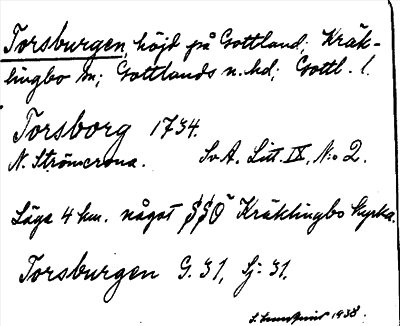 Torsburgen, höjd på Gottland; Kräk-
lingbo sn; Gottlands n. hd; Gottl. l.
Torsborg 1734.
N. Strömcrona. SvA. Litt. IX, N:o 2.
Läge 4 km. något SSO Kräklingbo kyrka.
Torsburgen G. 31, Lj. 31.
1938.